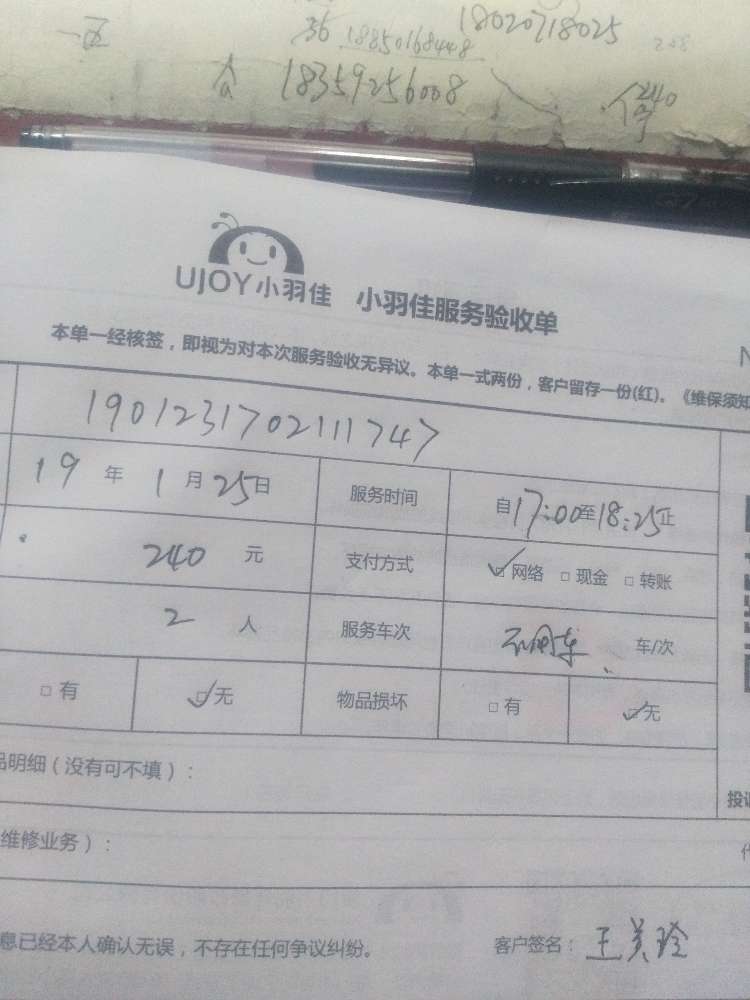 一区 36 18850168448 18020718025
18359256008 停240
UJOY小羽佳 小羽佳服务验收单
本单一经核签，即视为对本次服务验收无异议。本单一式两份，客户留存一份(红)。《维保须知
1901231702111747
19年1月25日 服务时间 自17:00至18:25止
240元 支付方式 ☑网络 □现金 □转账
2人 服务车次 不用车 车/次
□有 ☑无 物品损坏 □有 ☑无
品明细（没有可不填）：
投诉
维修业务）：
息已经本人确认无误，不存在任何争议纠纷。 客户签名：王美玲